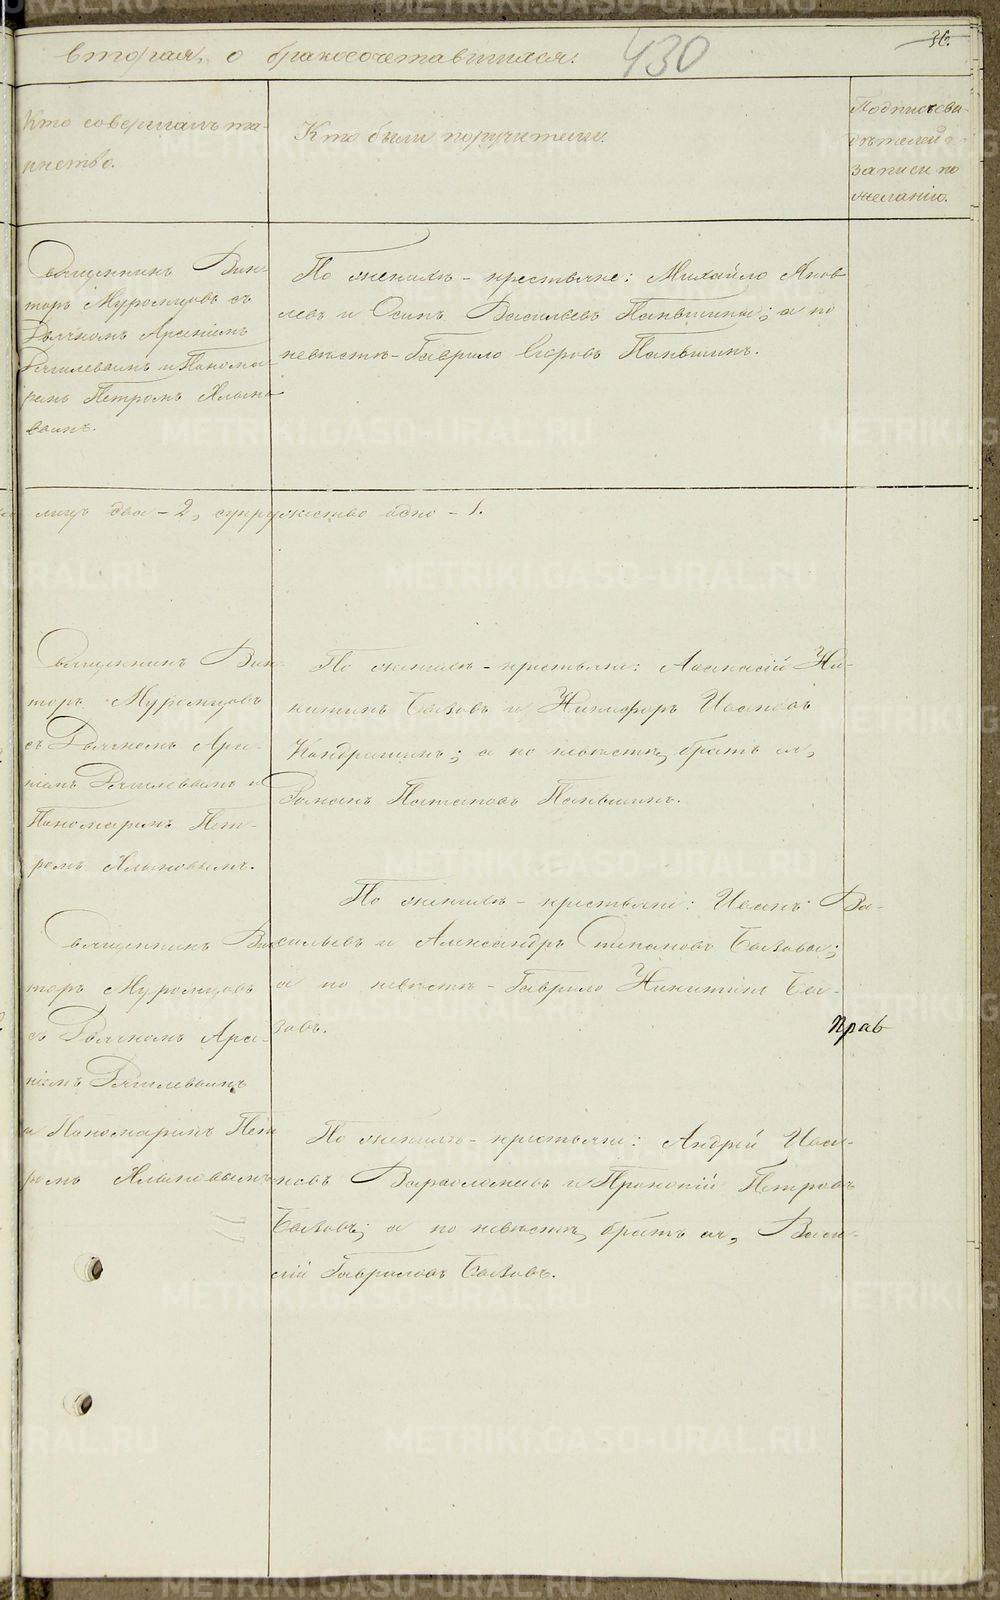 36.
430
вторая, о бракосочетавшихся.
Кто совершалъ та-
инство.
Кто были поручители.
Подписъ сви-
дѣтелей о
записи по
желанію.
Священникъ Вик-
торъ Муромцовъ съ
Дьячкомъ Арсеніемъ
и Понома-
ремъ Петромъ
По женихѣ - крестьяне: Михайло Яков-
левъ и Осипъ Васильевъ Паньшины; а по
невѣстѣ - Гаврило Егоровъ Паньшинъ.
лицъ два - 2, супружество одно - 1.
Священникъ Вик-
торъ Муромцовъ
съ Дьячкомъ Арсе-
ніемъ и
Пономаремъ Пет-
ромъ
По женихѣ - крестьяне: Аѳанасій Ни-
китинъ Бызовъ и Никифоръ Ивановъ
Кондрашинъ; а по невѣстѣ, братъ ея,
Романъ Потаповъ Паньшинъ.
Священникъ Вик-
торъ Муромцовъ
съ Дьячкомъ Арсе-
ніемъ
и Пономаремъ Пет-
ромъ
По женихѣ - крестьяне: Иванъ Ва-
сильевъ и Александръ Степановъ Бызовы;
а по невѣстѣ - Гаврило Никитинъ Бы-
зовъ.
Прав
По женихѣ - крестьяне: Андрей Ива-
новъ Варѳоломеевъ и Прокопій Петровъ
Бызовъ; а по невѣстѣ, братъ ея, Васи-
лій Гавриловъ Бызовъ.
METRIKI.GASO-URAL.RU